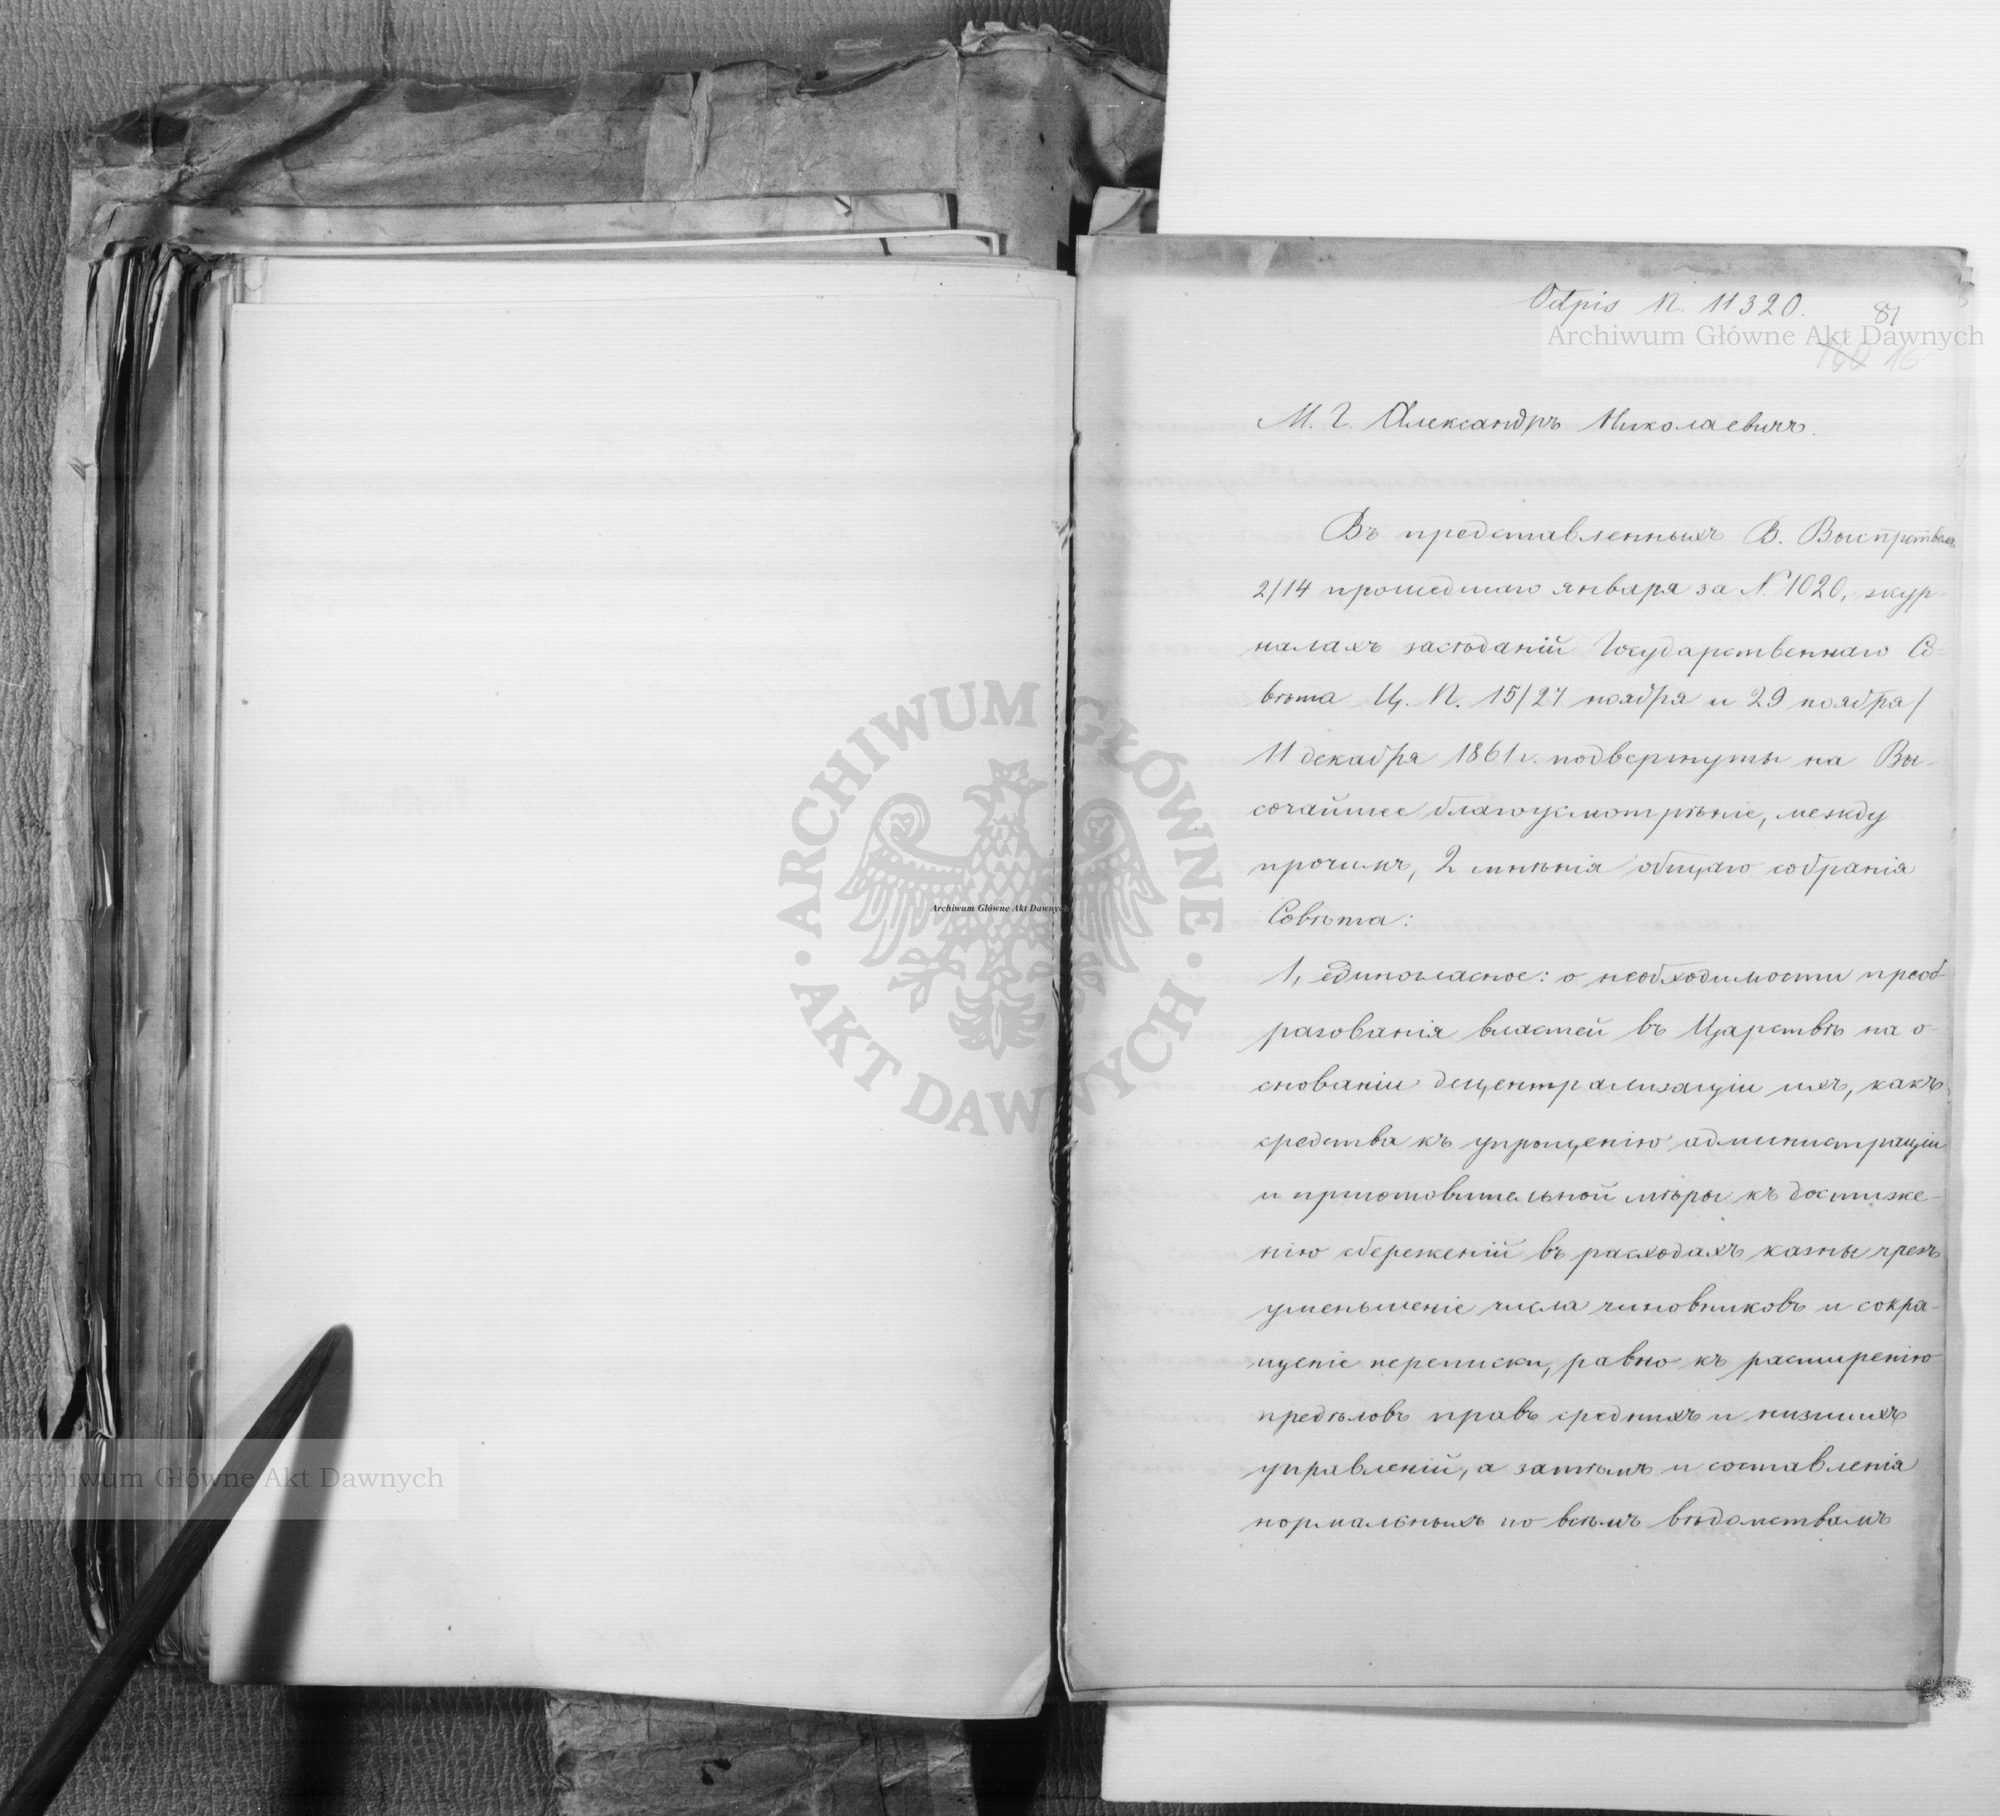 Odpis N. 11320.
81
160 16
М. Г. Александръ Николаевичъ.
Въ представленныхъ В. Выспрствомъ
2/14 прошедшаго января за N. 1020, жур-
налахъ засѣданій Государственнаго Со-
вѣта Ц. П. 15/27 ноября и 29 ноября/
11 декабря 1861 г. подвергнуты на Вы-
сочайшее благоусмотрѣніе, между
прочимъ, 2 мнѣнія общаго собранія
Совѣта:
1, единогласное: о необходимости преоб-
разованія властей въ Царствѣ на о-
снованіи децентрализаціи ихъ, какъ
средства къ упрощенію администраціи
и приготовительной мѣры къ достиже-
нію сбереженій въ расходахъ казны чрезъ
уменьшеніе числа чиновниковъ и сокра-
щеніе переписки, равно къ расширенію
предѣловъ правъ среднихъ и низшихъ
управленій, а затѣмъ и составленія
нормальныхъ по всѣмъ вѣдомствамъ
Archiwum Główne Akt Dawnych
ARCHIWUM GŁÓWNE AKT DAWNYCH
Archiwum Główne Akt Dawnych
Archiwum Główne Akt Dawnych